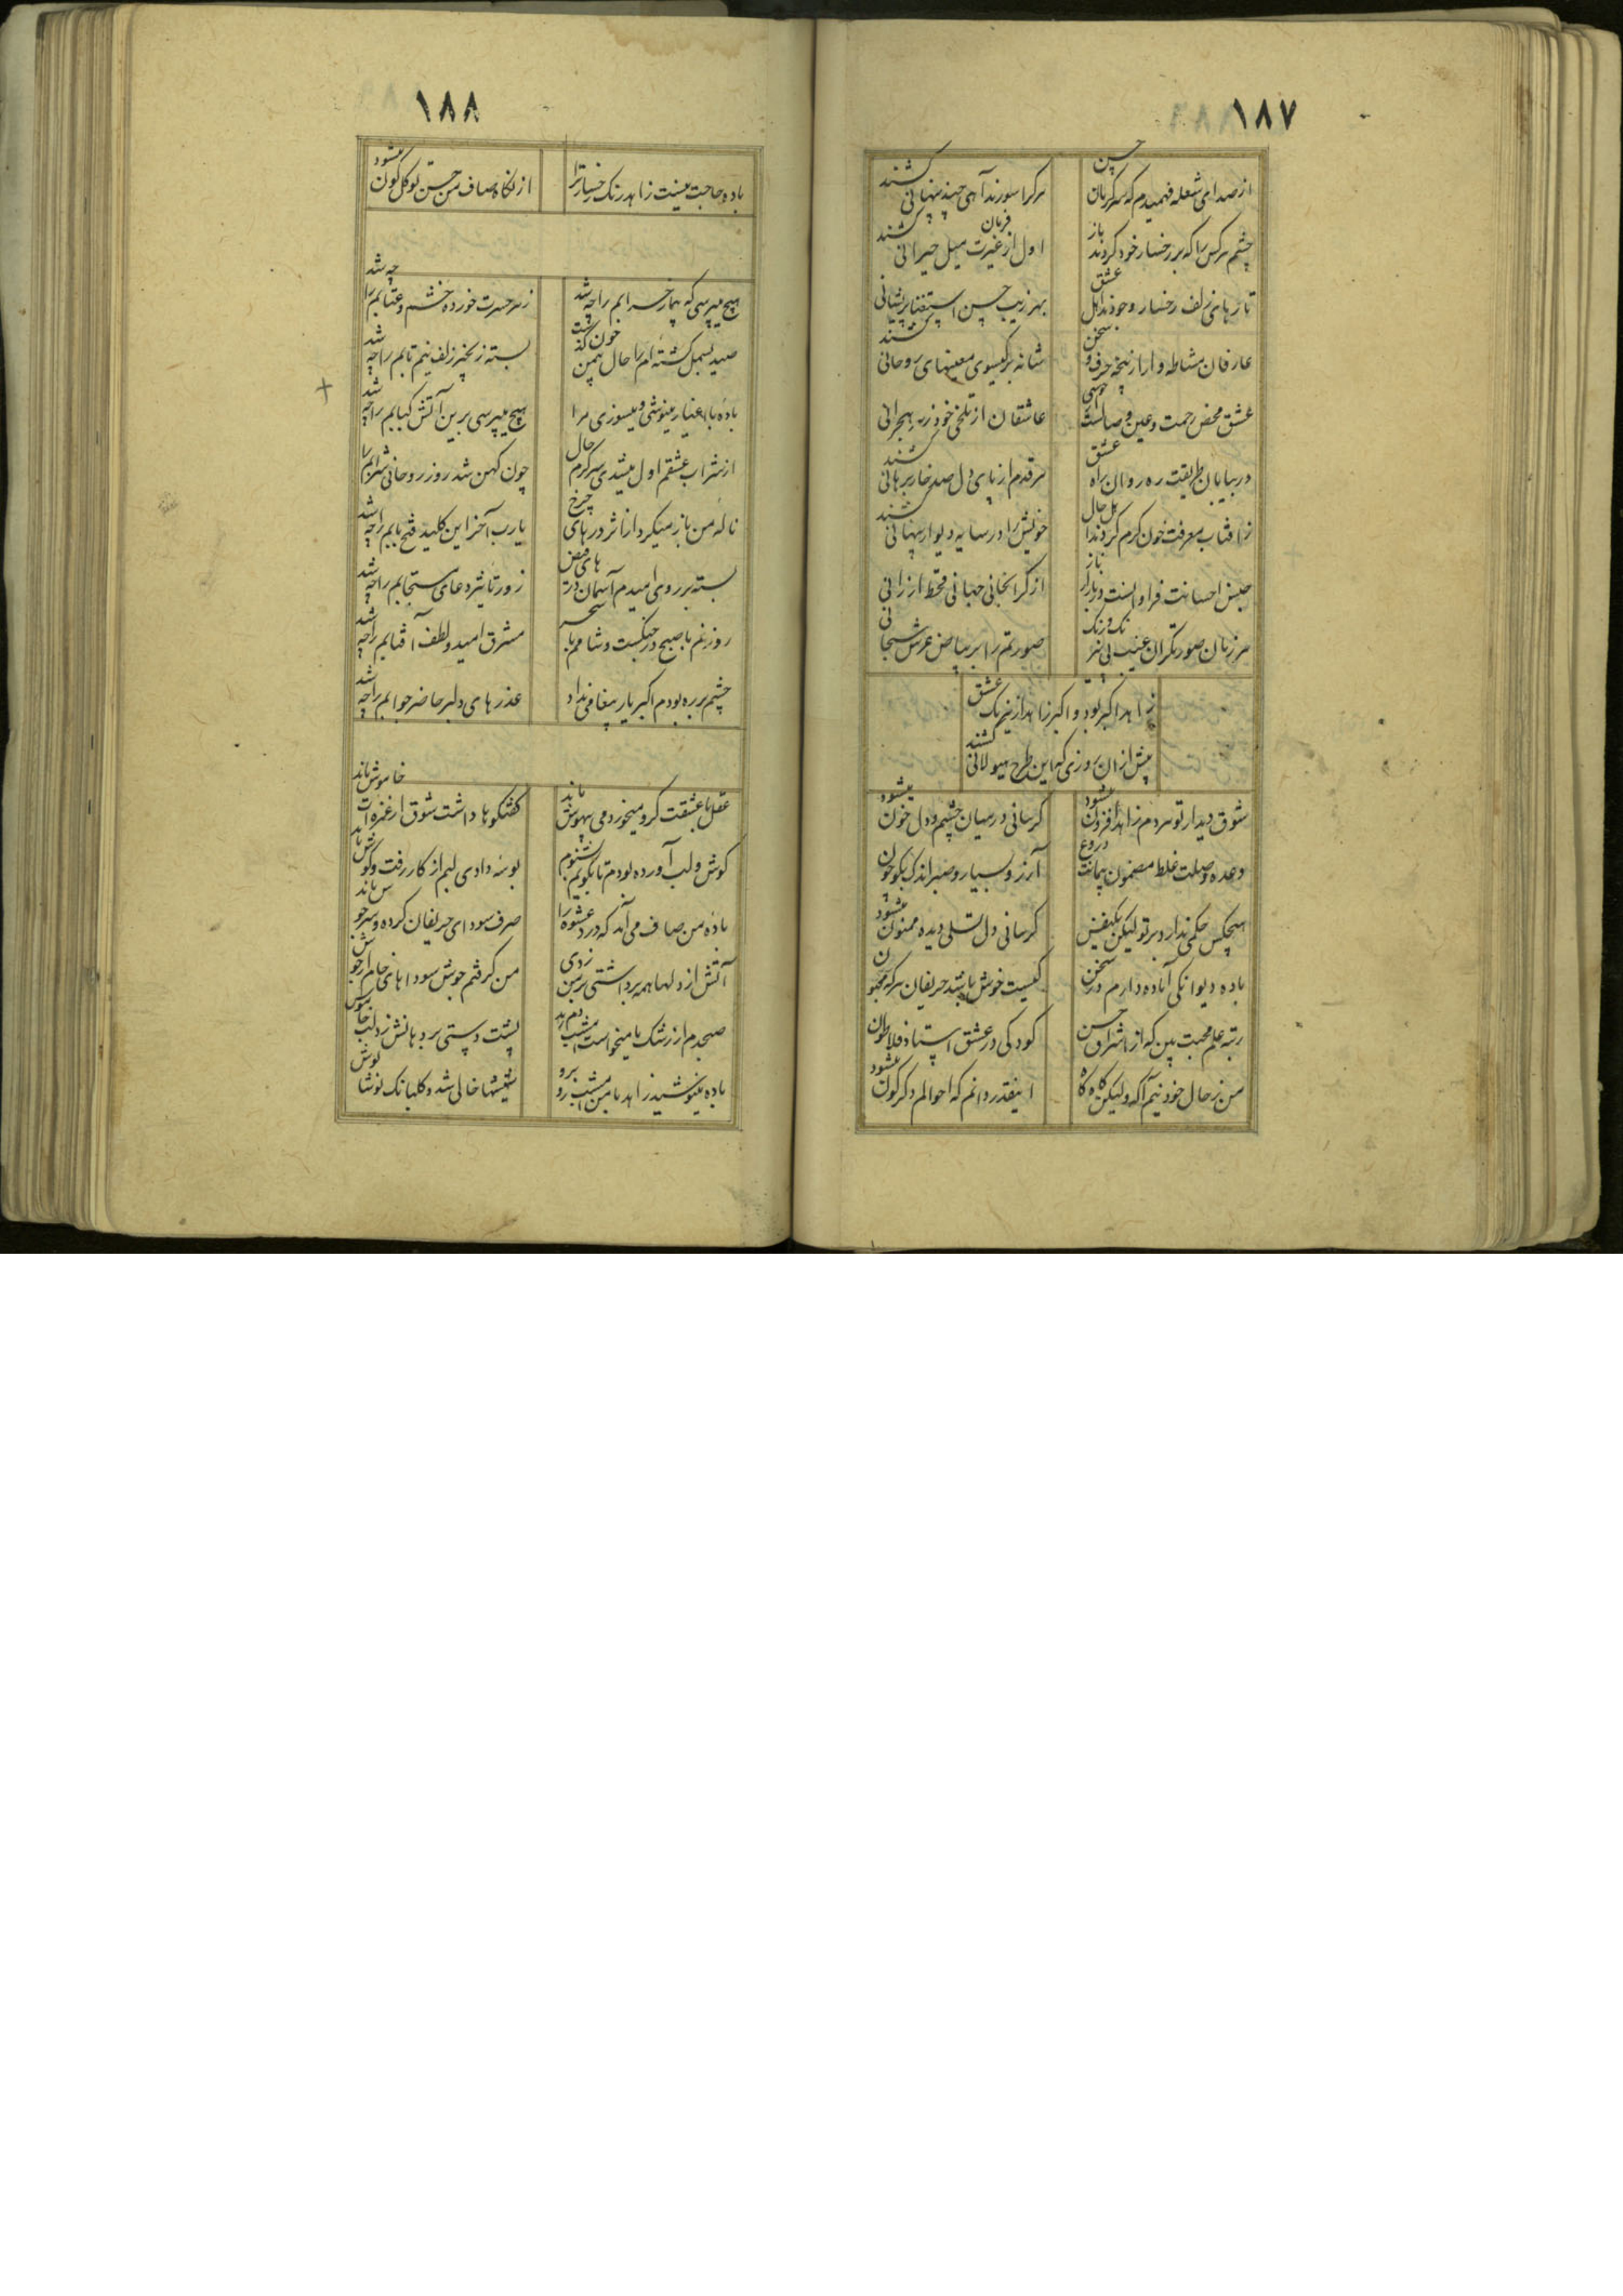 ۱۸۷
از صدای شعله فهمیدم که سرکریان حسن
هرکرا سوزند آهی چند پنهانی کشند
چشم هرکس را که بر رخسار خود کردند باز
اول از غیرت میل حیرانی کشند
تارهای زلف رخسار وجودند اهل عشق
بهر زیب حسن استغنا پریشانی
عارفان مشاطه وار از پنجه حرف و سخن
شانه بر کیسوی معنیهای روحانی کشند
عشق محض رحمت و عین وصالست
عاشقان از تلخی خود زهر هجرانی
در بیابان طریقت ره روان راه عشق
هر قدم از پای دل صد خار برهانی کشند
ز افتاب معرفت خون کرم کردند اهل حال
خویش را در سایه دیوار پنهانی کشند
جنس احسانت فراوانست در بازار
از کرانجانی جهانی قحط ارزانی
هر زبان صورتکران غیب بی رنک
صورتم را بر بیاض عرش سبحانی
زاهد اکبر بود و اکبر زاهد از نیرنک عشق
پیش از ان روزی که این طرح هیولانی کشند
شوق دیدار تو هر دم زاهد افزون میشود
کرسانی درمیان چشم و دل خون میشود
وعده وصلت غلط مضمون پیمانت دروغ
آرزو بسیار و صبر اندک بکو چون
هیچکس حکمی ندارد بر تو لیکن یکنفس
کرسانی دل تسلی دیده ممنون میشود
باده دیوانکی آماده دارم در سخن
کیست خوش باشد حریفان هرکه مجنون
رتبه علم محبت بین که از اشراق حسن
کودکی در عشق استاد فلاطون
من ز حال خود نیم آکه ولیکن کاه کاه
اینقدر دانم که احوالم دکرکون میشود
۱۸۸
باده حاجت نیست زاهد رنک رخسار ترا
از نکاه صاف من حسن تو کلکون میشود
هیچ میپرسی که بیمار خرابم را چه شد
زهر حسرت خورده خشم و عتابم را چه شد
صید بسمل کشته ام را حال بین
بسته زنجیر زلف نیم تابم را چه شد
باده با اغیار مینوشی و میسوزی مرا
هیچ میپرسی برین آتش کبابم را چه شد
از شراب عشقم اول میشدی سرکرم حال
چون کهن شد روز روحانی شرابم را
ناله من باز میکرد از اثر درهای چرخ
یارب آخر این کلید فتح بابم را چه شد
بسته بر روی امیدم آسمان درهای فیض
زور تاثیر دعای مستجابم را چه شد
روز غم با صبح در جنکست و شامم با سحر
مشرق امید و لطف آفتابم را چه شد
چشم بر ره بودم اکبر یار پیغامی نداد
عذرهای دلبر حاضر جوابم را چه شد
عقل با عشقت کرو میخورد می بیهوش ماند
کفتکوها داشت شوق از غمزه ات خاموش ماند
کوش و لب آورده بودم تا بکویم بشنوم
بوسه دادی لبم از کار رفت و کوش ماند
باده من صاف می آمد که درد عشوه را
صرف سودای حریفان کرده و سرجوش ماند
آتش از دلها همه برداشتی بر من زدی
من کرفتم جوش سوداهای خام از جوش
صبحدم از رشک ما میخواست امشب دم زند
پشت دستی بر دهانش زد لب خاموش
باده مینوشید زاهد با من امشب رو برو
شیشها خالی شد و کلبانک نوشانوش